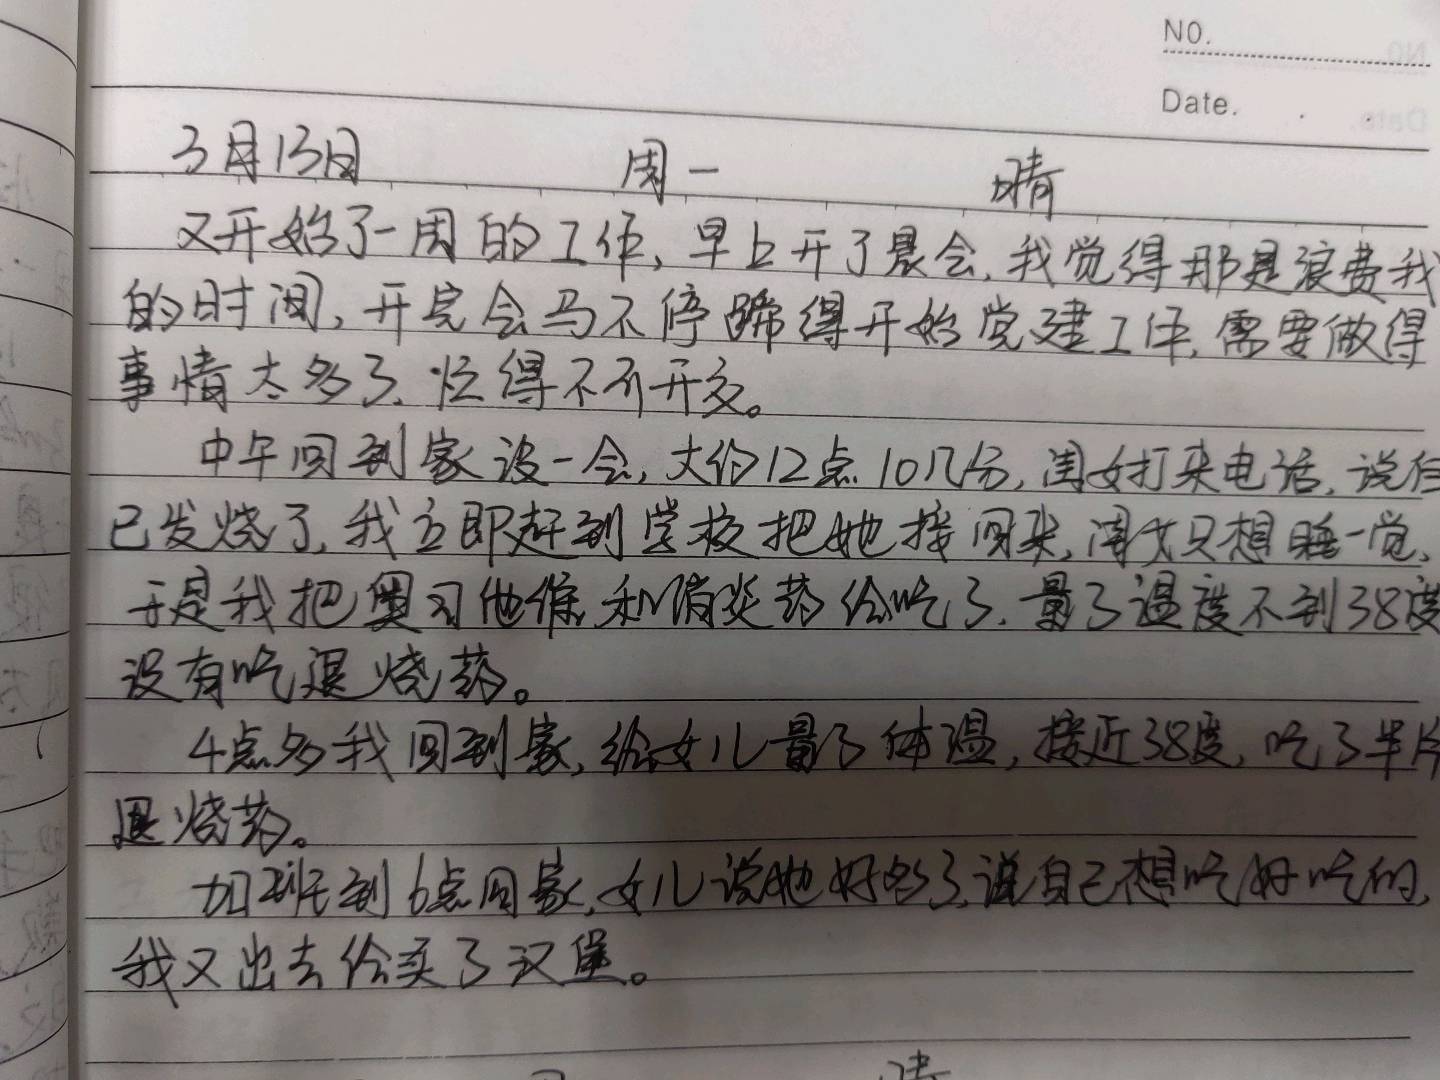 NO.
Date.
3月13日 周一 晴
又开始了一周的工作,早上开了晨会,我觉得那是浪费我
的时间,开完会马不停蹄得开始党建工作,需要做得
事情太多了,忙得不可开交。
中午回到家没一会,大约12点10几分,闺女打来电话,说自
己发烧了,我立即赶到学校把她接回来,闺女只想睡一觉,
于是我把奥司他韦和消炎药给吃了,量了温度不到38度
没有吃退烧药。
4点多我回到家,给女儿量了体温,接近38度,吃了半片
退烧药。
加班到6点回家,女儿说她好多了,说自己想吃好吃的,
我又出去给买了汉堡。